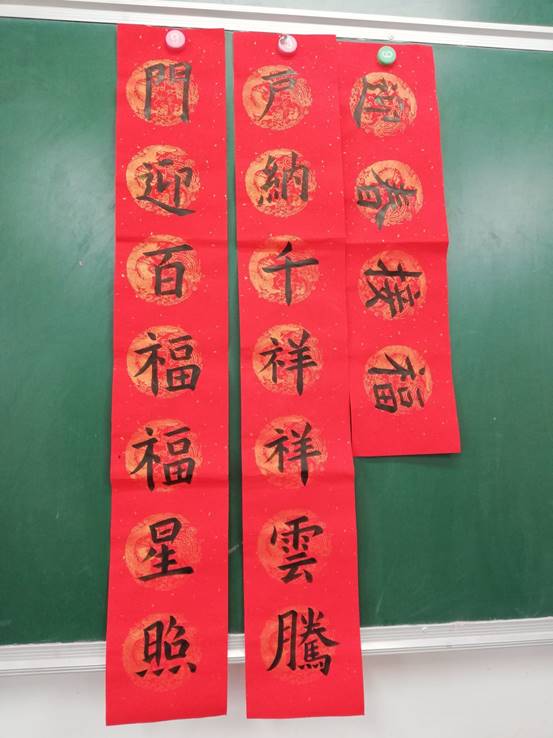 門迎百福福星照
户納千祥祥雲騰
迎春接福